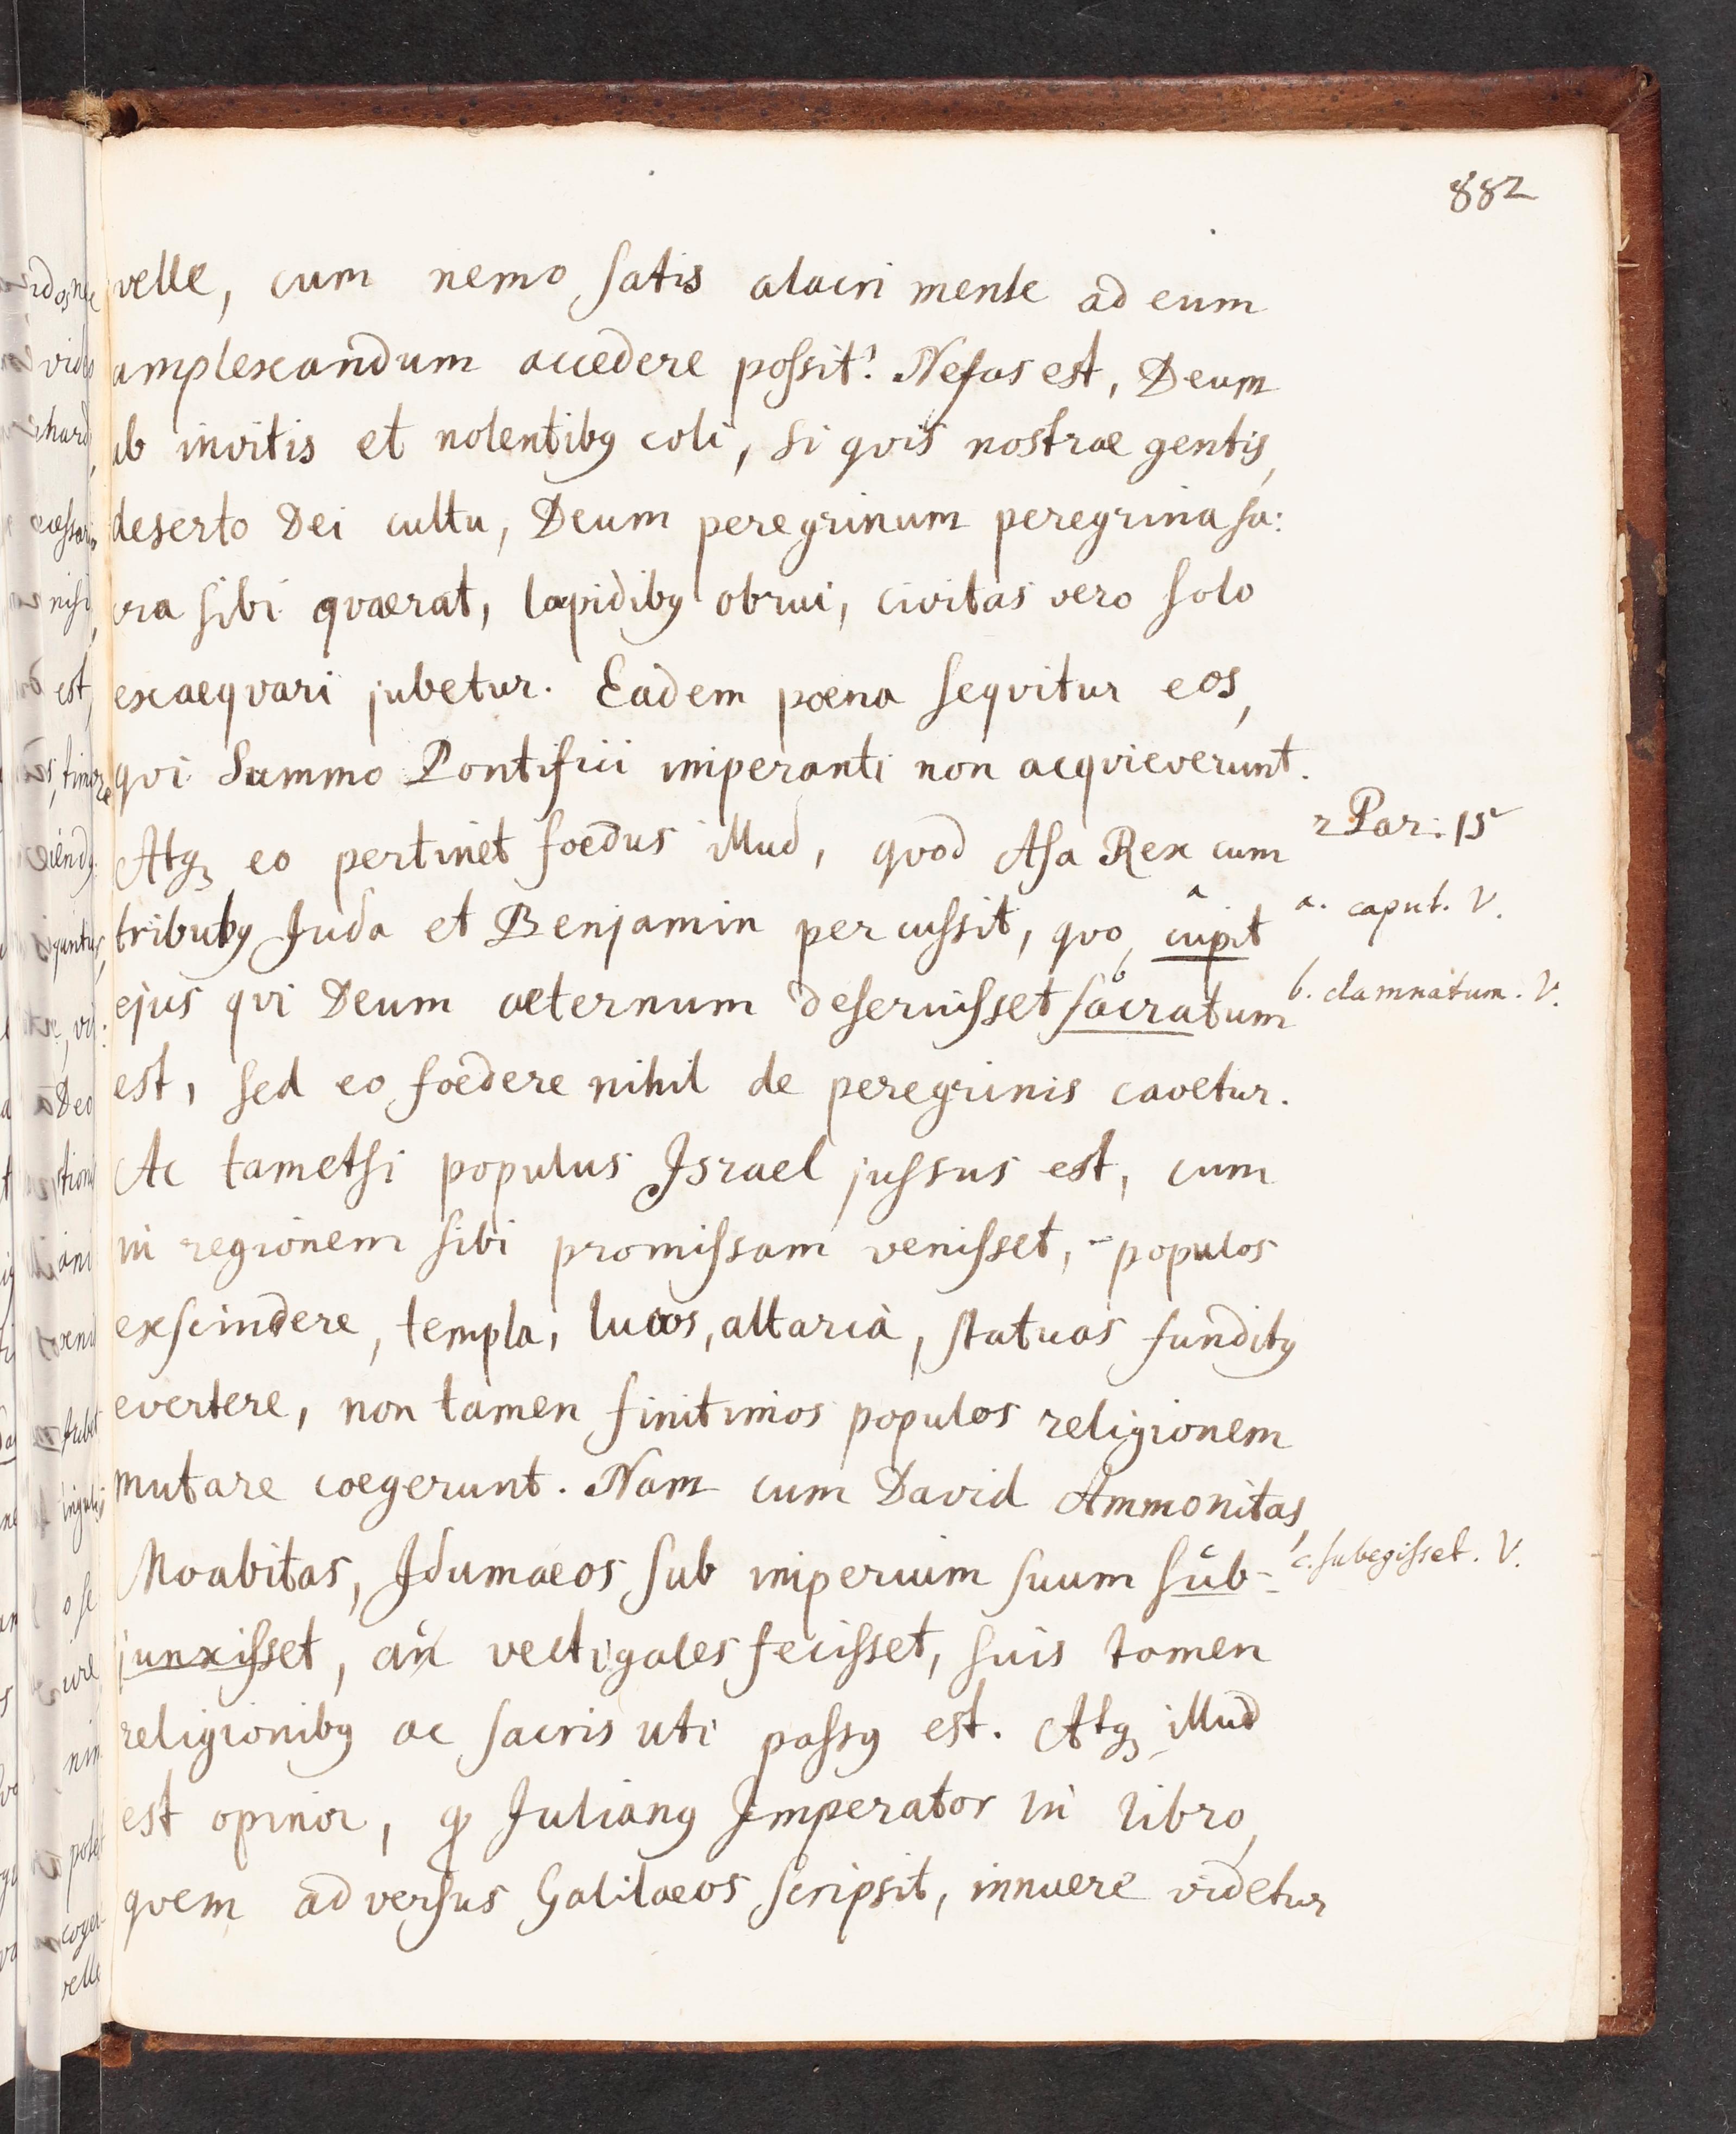 882
velle, cum nemo satis alacri mente ad eum
amplexandum accedere possit? Nefas est, Deum
ab invitis et nolentibꝯ coli, si qvis nostrae gentis,
deserto Dei cultu, Deum peregrinum peregrina sa:
cra sibi qvaerat, lapidibꝯ obrui, civitas vero solo
exaeqvari jubetur. Eadem poena seqvitur eos,
qvi Summo Pontificii imperanti non acqvieverunt.
Atqꝫ eo pertinet foedus illud, qvod Asa Rex cum
2 Par: 15
tribubꝯ Juda et Benjamin percussit, qvo, cupit
a. caput. V.
ejus qvi Deum aeternum deseruisset sacratum
b. damnatum. V.
est, sed eo foedere nihil de peregrinis cavetur.
Ac tametsi populus Israel jussus est, cum
in regionem sibi promissam venisset, populos
exscindere, templa, lucos, altaria, statuas funditꝯ
evertere, non tamen finitimos populos religionem
mutare coegerunt. Nam cum David Ammonitas,
Moabitas, Idumaeos sub imperium suum sub-
c. subegisset. V.
junxisset, an vectigales fecisset, suis tamen
religionibꝯ ac sacris uti passꝯ est. Atqꝫ illud
est opinor, qꝫ Julianꝯ Imperator in libro,
qvem adversus Galilaeos scripsit, innuere videtur